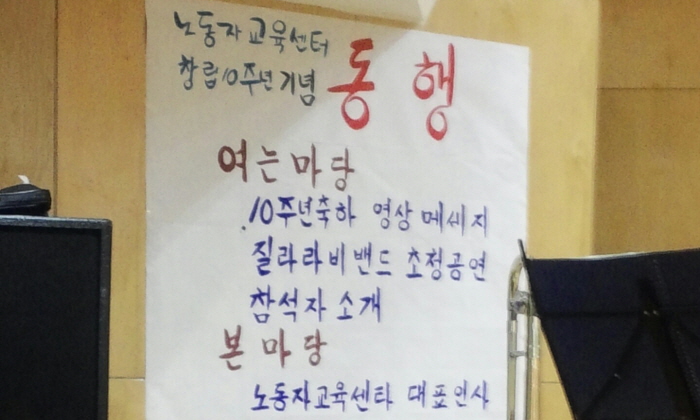 노동자교육센터
창립10주년기념 동행
여는마당
.10주년축하 영상메세지
질라라비밴드 초청공연
참석자소개
본마당
노동자교육센타 대표인사